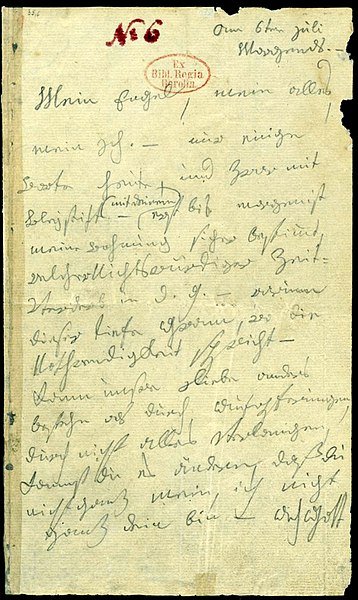 No 6
am 6ten Juli
Morgends. –
Ex
Bibl. Regia
Berolin.
Mein Engel, mein alles,
mein Ich. – nur einige
Worte heute, und zwar mit
Bleystift – (mit deinem)
erst bis morgen ist
meine Wohnung sicher bestimt,
welcher Nichtswürdiger Zeit-
verderb in d. g. – warum
dieser tiefe Gram, wo die
Nothwendigkeit spricht –
Kann unsre Liebe anders
bestehn als durch Aufopferungen,
durch nicht alles verlangen,
kannst du es ändern, daß du
nicht ganz mein, ich nicht
ganz dein bin – Ach Gott